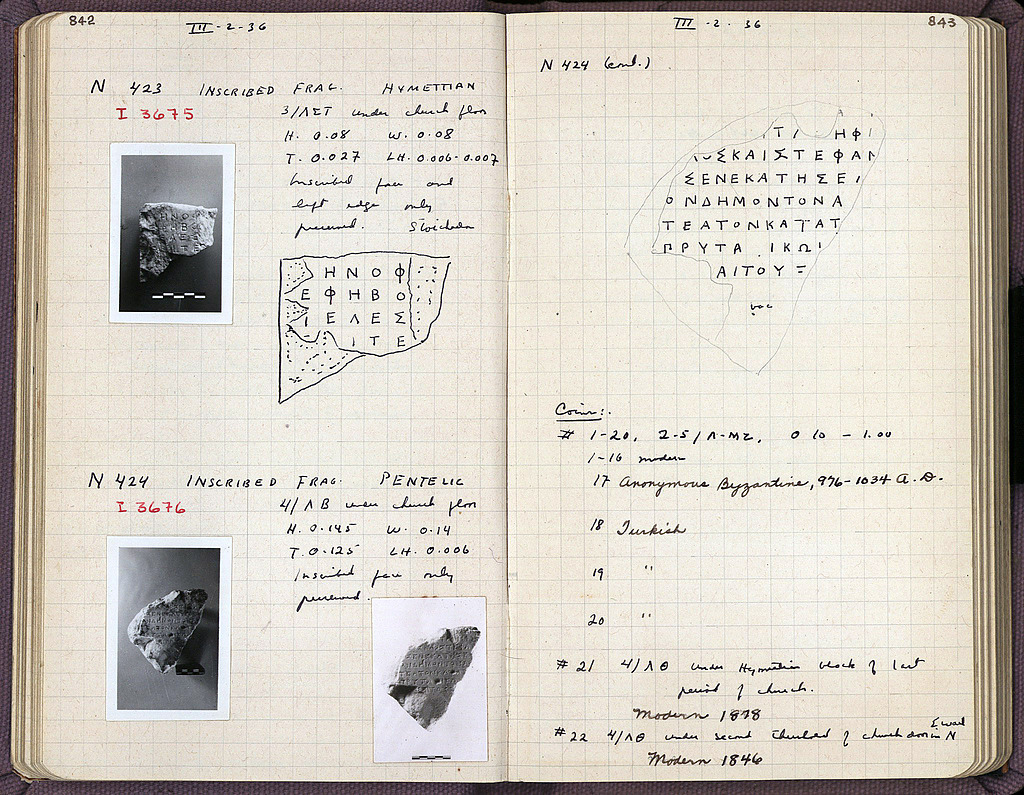 842
III-2-36
N 423 INSCRIBED FRAG. HYMETTIAN
I 3675
3/ΛΣΤ under church floor
H. 0.08 W. 0.08
T. 0.027 LH. 0.006-0.007
Inscribed face and
left edge only
preserved. Stoichedon
ΗΝΟΦ
ΕΦΗΒΟ
ΙΕΛΕΣ
ΙΤΕ
N 424 INSCRIBED FRAG. PENTELIC
I 3676
4/ΛΒ under church floor
H. 0.145 W. 0.14
T. 0.125 LH. 0.006
Inscribed face only
preserved.
III-2-36
843
N 424 (cont.)
ΙΤΙ ΗΦΙ
ΟΣΚΑΙΣΤΕΦΑΝ
ΣΕΝΕΚΑΤΗΣΕΙ
ΟΝΔΗΜΟΝΤΟΝΑ
ΤΕΑΤΟΝΚΑΤΑΤ
ΠΡΥΤΑ ΙΚΩΙ
ΑΙΤΟΥΞ
vac
Coins:
# 1-20, 2-5/Λ-ΜΣ, 0.10 - 1.00
1-16 modern
17 Anonymous Byzantine, 976-1034 A.D.
18 Turkish
19 "
20 "
# 21 4/ΛΘ under Hymettian block of last
period of church.
Modern 1878
# 22 4/ΛΘ under second threshold of church door in N
Modern 1846